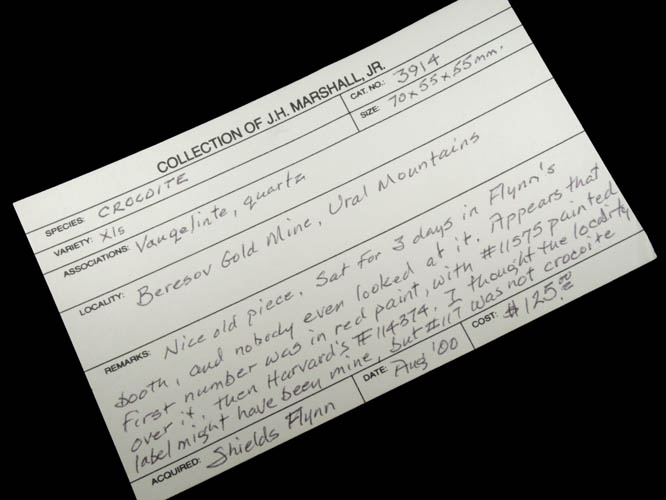 COLLECTION OF J.H. MARSHALL, JR.
SPECIES: CROCOITE CAT. NO.: 3914
VARIETY: Xls SIZE: 70x55x55mm.
ASSOCIATIONS: Vauqelinte, quartz
LOCALITY: Beresov Gold Mine, Ural Mountains
REMARKS: Nice old piece. Sat for 3 days in Flynn's
booth, and nobody even looked at it. Appears that
first number was in red paint, with #11575 painted
over it, then Harvard's #114374. I thought the locality
label might have been mine, but #117 was not crocoite
ACQUIRED: Shields Flynn DATE: Aug '00 COST: $125.00